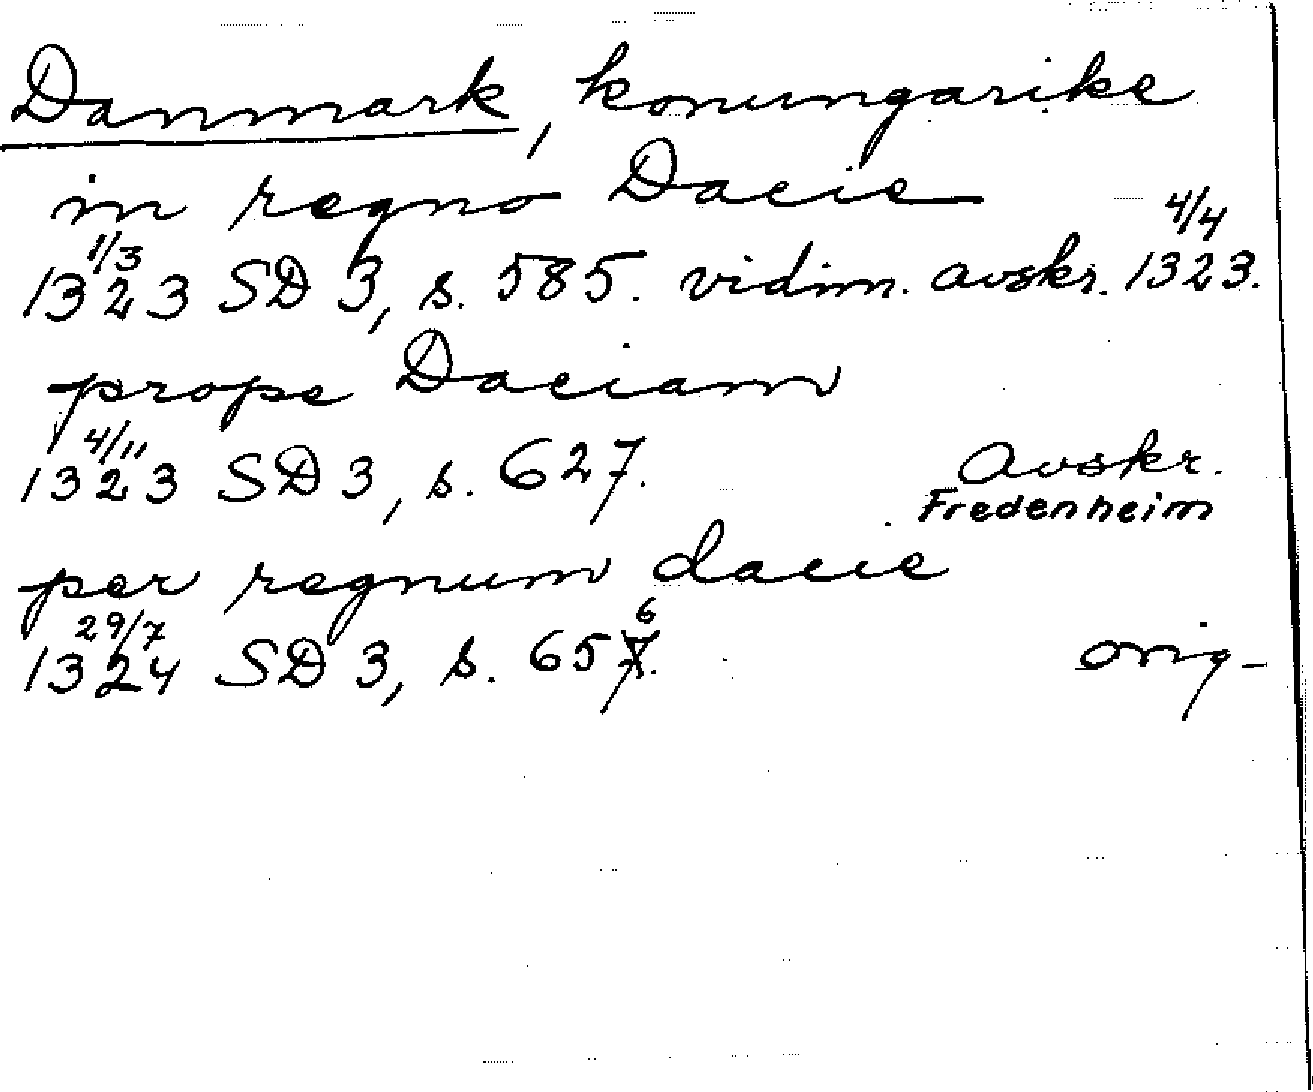 Danmark, konungarike
in regno Dacie
1/3 4/4
1323 SD 3, s. 585. vidim. avskr. 1323.
prope Daciam
4/11
1323 SD 3, s. 627. Avskr.
Fredenheim
per regnum dacie
29/7 6
1324 SD 3, s. 657. orig-